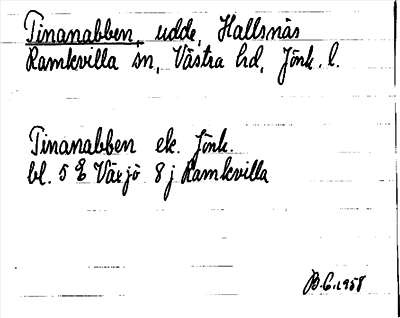 Tinanabben, udde, Hallsnäs
Ramkvilla sn, Västra hd, Jönk. l.
Tinanabben ek. Jönk.
bl. 5 E Växjö 8 j Ramkvilla
B.C. 1958